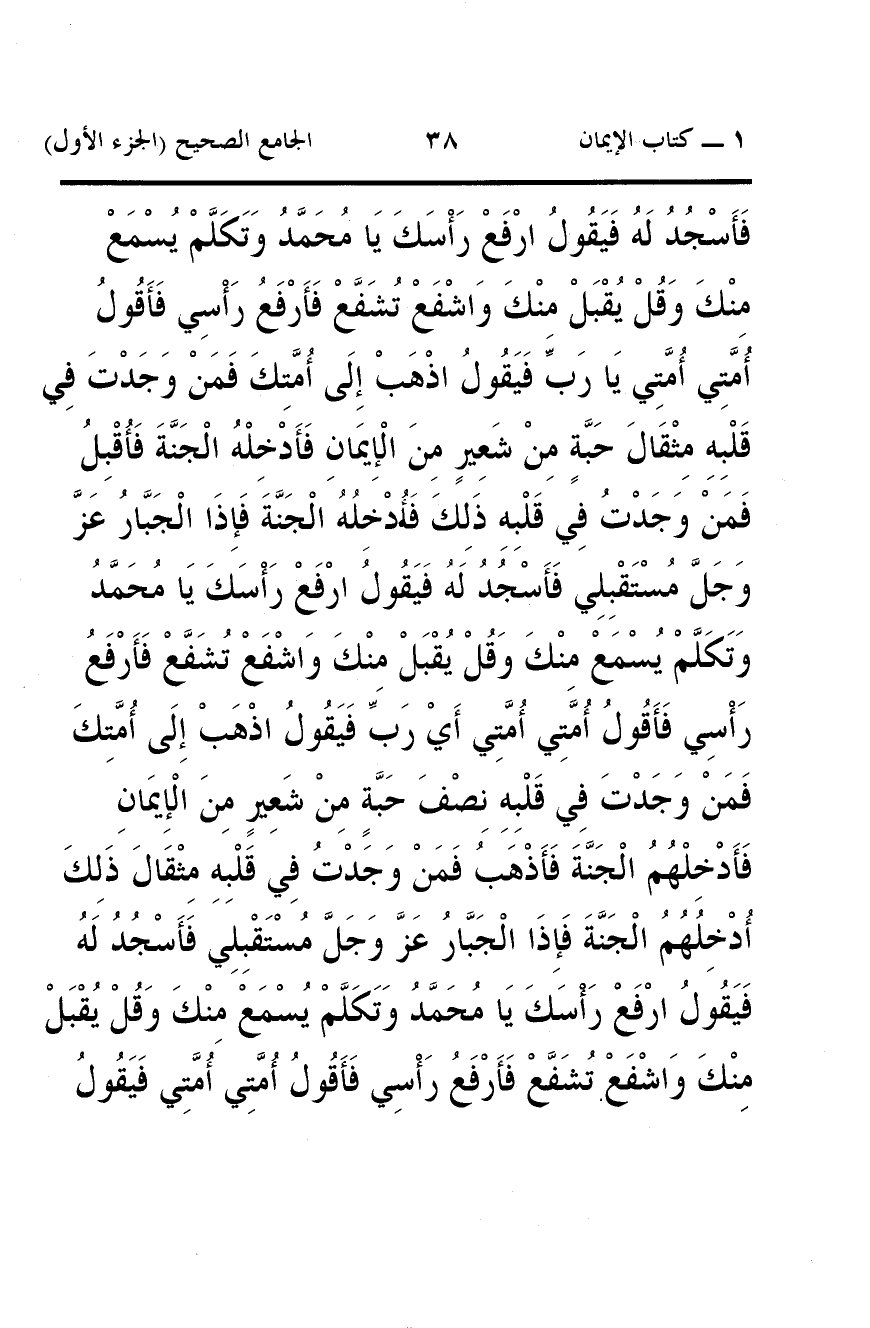 ١ ــ كتاب الإيمان ٣٨ الجامع الصحيح (الجزء الأول)
فَأَسْجُدُ لَهُ فَيَقُولُ ارْفَعْ رَأْسَكَ يَا مُحَمَّدُ وَتَكَلَّمْ يُسْمَعْ
مِنْكَ وَقُلْ يُقْبَلْ مِنْكَ وَاشْفَعْ تُشَفَّعْ فَأَرْفَعُ رَأْسِي فَأَقُولُ
أُمَّتِي أُمَّتِي يَا رَبِّ فَيَقُولُ اذْهَبْ إِلَى أُمَّتِكَ فَمَنْ وَجَدْتَ فِي
قَلْبِهِ مِثْقَالَ حَبَّةٍ مِنْ شَعِيرٍ مِنَ الْإِيمَانِ فَأَدْخِلْهُ الْجَنَّةَ فَأُقْبِلُ
فَمَنْ وَجَدْتُ فِي قَلْبِهِ ذَلِكَ فَأُدْخِلُهُ الْجَنَّةَ فَإِذَا الْجَبَّارُ عَزَّ
وَجَلَّ مُسْتَقْبِلِي فَأَسْجُدُ لَهُ فَيَقُولُ ارْفَعْ رَأْسَكَ يَا مُحَمَّدُ
وَتَكَلَّمْ يُسْمَعْ مِنْكَ وَقُلْ يُقْبَلْ مِنْكَ وَاشْفَعْ تُشَفَّعْ فَأَرْفَعُ
رَأْسِي فَأَقُولُ أُمَّتِي أُمَّتِي أَيْ رَبِّ فَيَقُولُ اذْهَبْ إِلَى أُمَّتِكَ
فَمَنْ وَجَدْتَ فِي قَلْبِهِ نِصْفَ حَبَّةٍ مِنْ شَعِيرٍ مِنَ الْإِيمَانِ
فَأَدْخِلْهُمُ الْجَنَّةَ فَأَذْهَبُ فَمَنْ وَجَدْتُ فِي قَلْبِهِ مِثْقَالَ ذَلِكَ
أُدْخِلُهُمُ الْجَنَّةَ فَإِذَا الْجَبَّارُ عَزَّ وَجَلَّ مُسْتَقْبِلِي فَأَسْجُدُ لَهُ
فَيَقُولُ ارْفَعْ رَأْسَكَ يَا مُحَمَّدُ وَتَكَلَّمْ يُسْمَعْ مِنْكَ وَقُلْ يُقْبَلْ
مِنْكَ وَاشْفَعْ تُشَفَّعْ فَأَرْفَعُ رَأْسِي فَأَقُولُ أُمَّتِي أُمَّتِي فَيَقُولُ